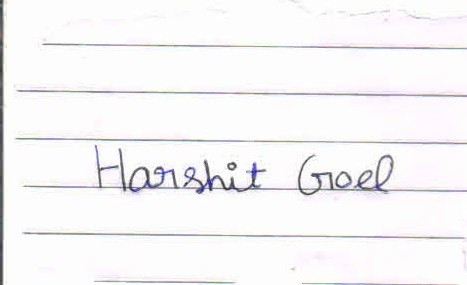 Harshit Goel